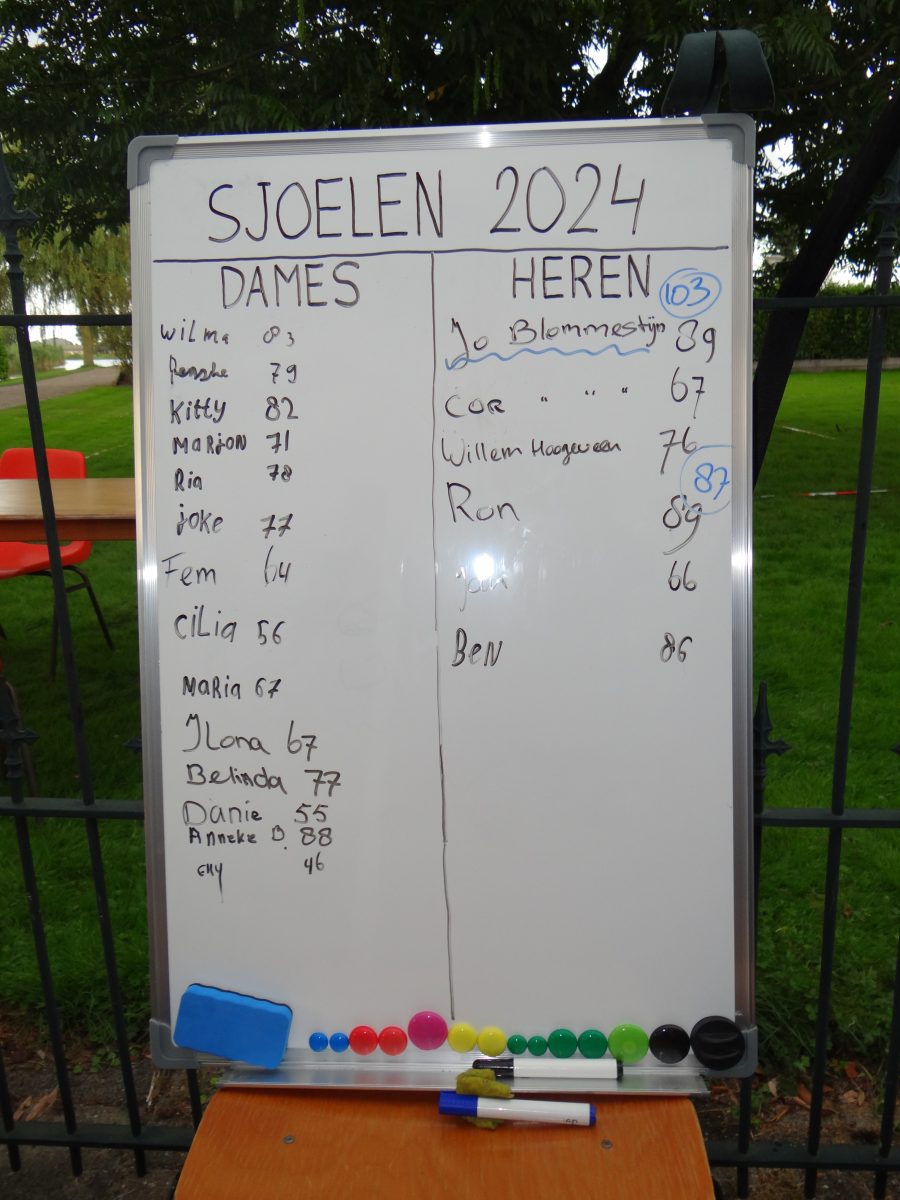 SJOELEN 2024
DAMES
Wilma 83
Renske 79
Kitty 82
MARJON 71
Ria 78
joke 77
Fem 64
CILIA 56
MARIA 67
Ilona 67
Belinda 77
Danie 55
Anneke B. 88
EMY 46
HEREN 103
Jo Blommestijn 89
COR " " " 67
Willem Hoogeveen 76
87
Ron 89
Jan 66
BEN 86